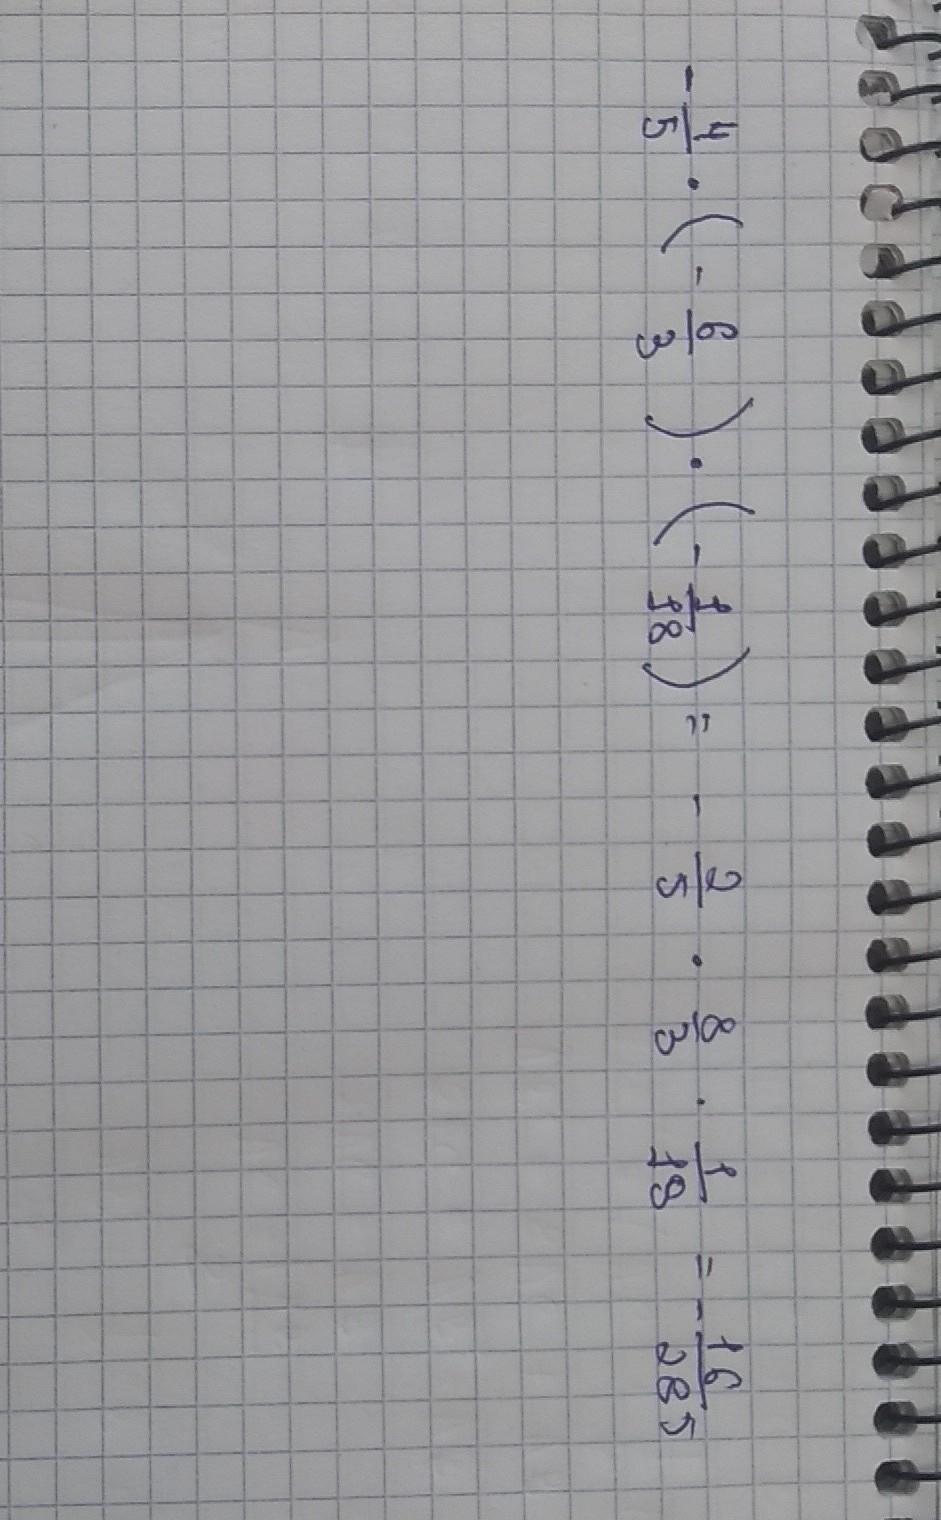 -4/5 · (-6/3) · (-1/18) = -2/5 · 8/3 · 1/19 = -16/285